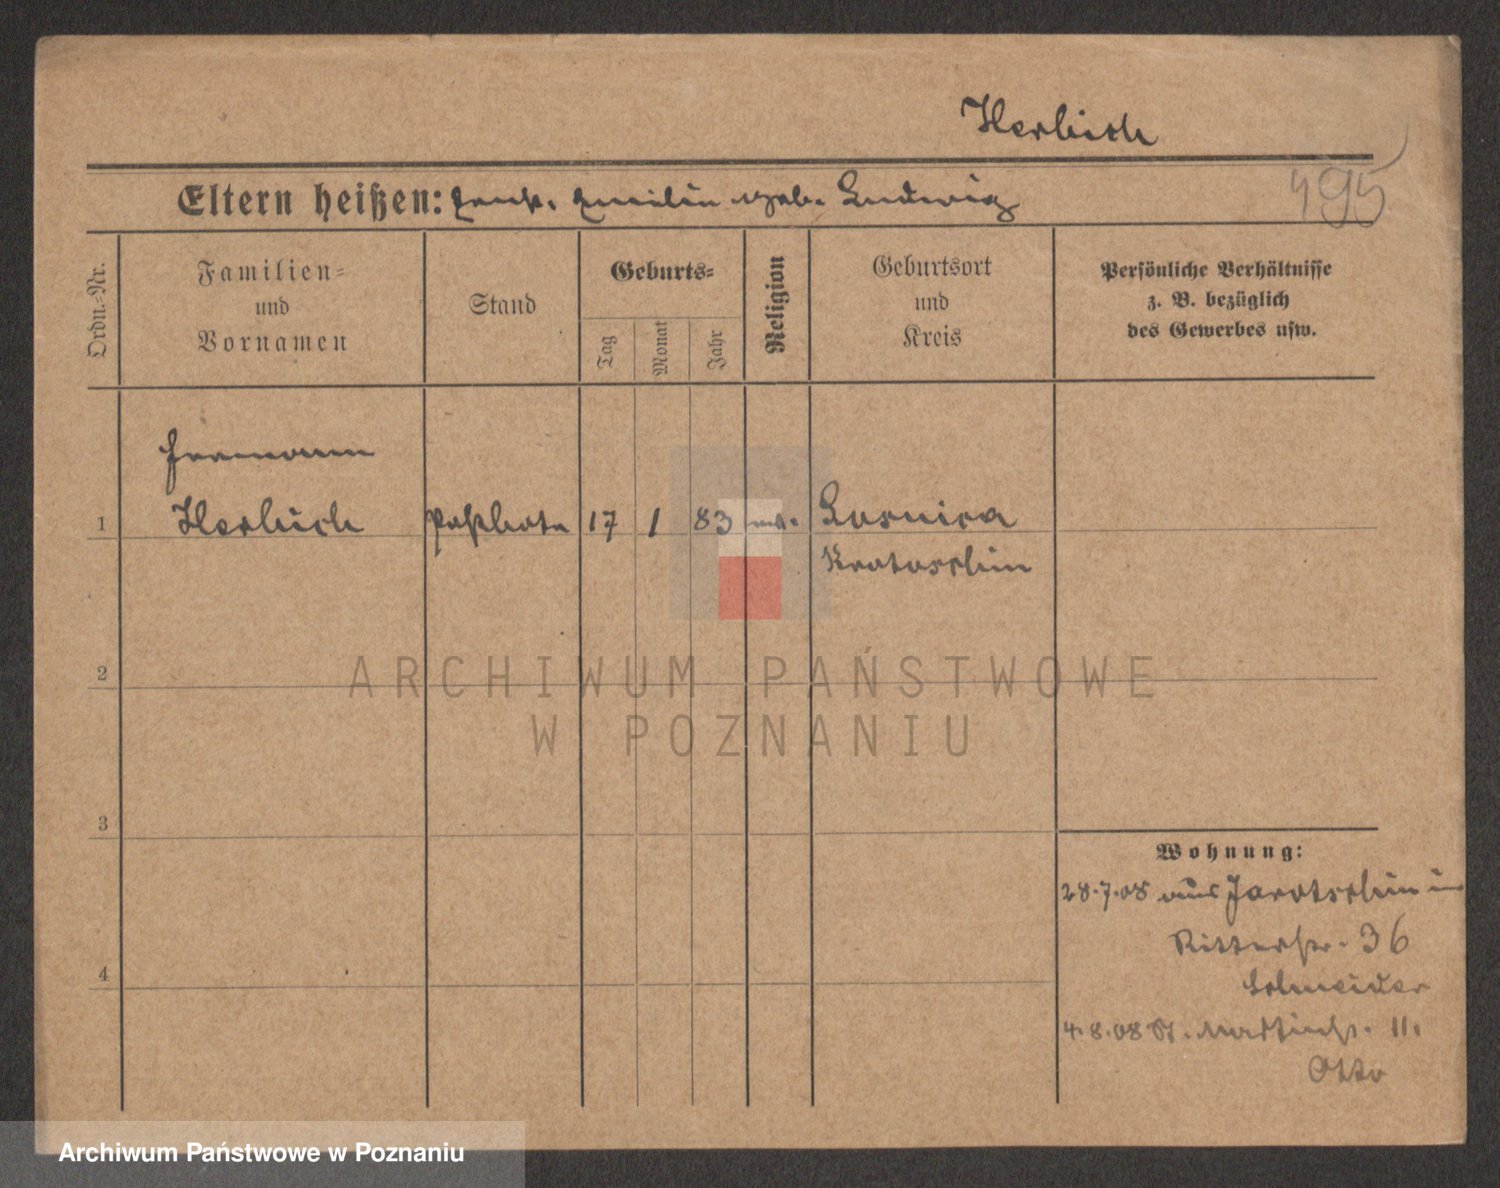 Herbich
Eltern heißen: Emilie geb. Ludwig
495
Ordn.-Nr.
Familien-
und
Vornamen
Stand
Geburts-
Tag
Monat
Jahr
Religion
Geburtsort
und
Kreis
Persönliche Verhältnisse
z. B. bezüglich
des Gewerbes usw.
Hermann
1 Herbich 17 1 83 ev.
Krotoschin
2
ARCHIWUM PAŃSTWOWE
W POZNANIU
3
Wohnung:
28.7.08 aus Jarotschin in
Ritterstr. 36
Schneider
4
4.8.08 St. Martinstr. 11.
Otto
Archiwum Państwowe w Poznaniu